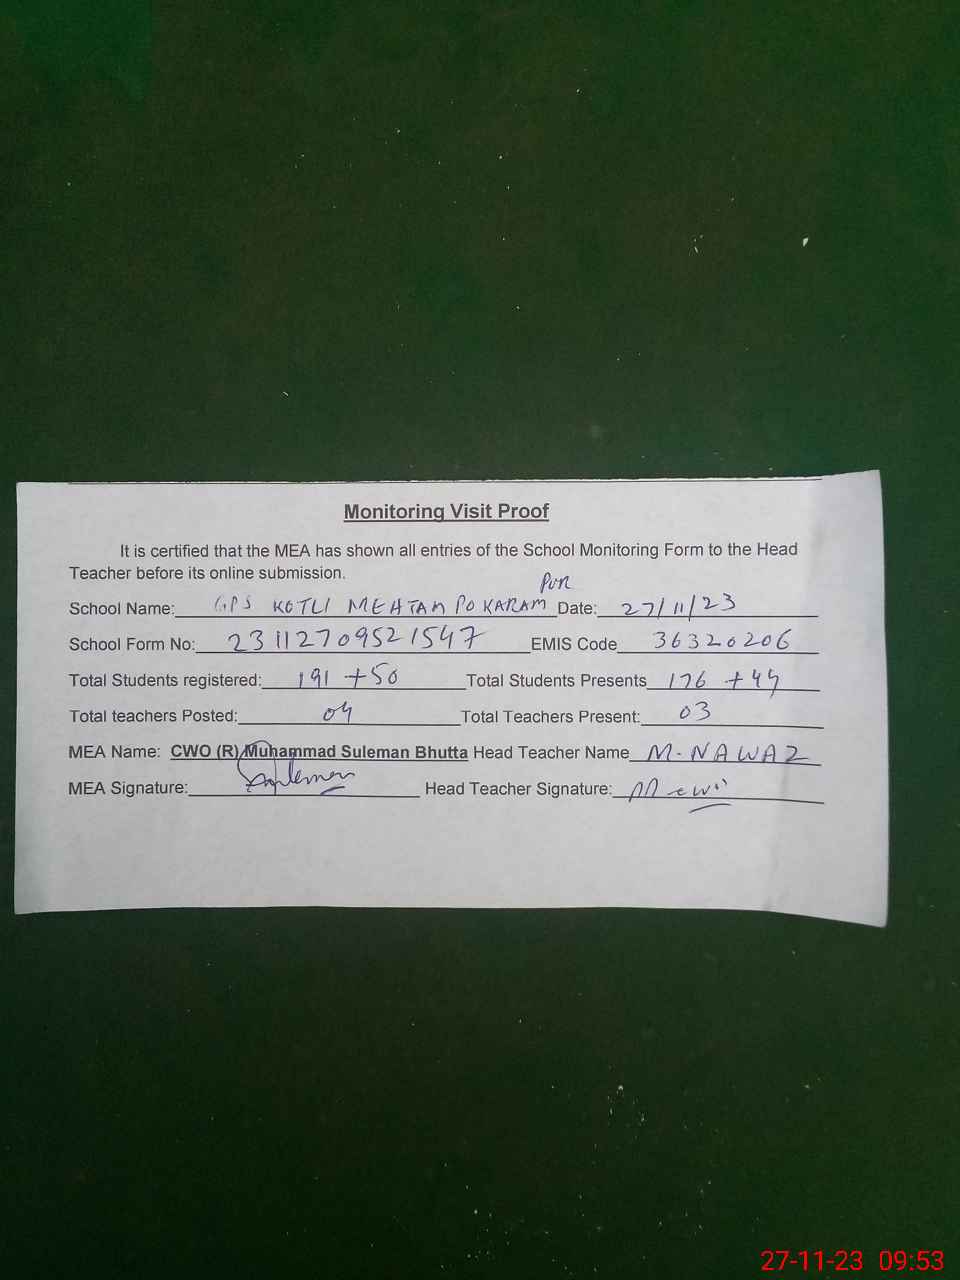 Monitoring Visit Proof
It is certified that the MEA has shown all entries of the School Monitoring Form to the Head
Teacher before its online submission.
School Name: GPS KOTLI MEHTAM POKARAM PUR Date: 27/11/23
School Form No: 23112709521547 EMIS Code 36320206
Total Students registered: 191 +50 Total Students Presents 176 +44
Total teachers Posted: 04 Total Teachers Present: 03
MEA Name: CWO (R) Muhammad Suleman Bhutta Head Teacher Name M-NAWAZ
MEA Signature: Suleman Head Teacher Signature:
27-11-23 09:53